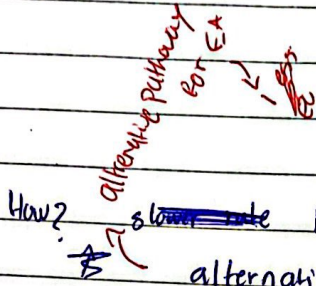 alternative Pathway
for EA
How? slower rate
alternati